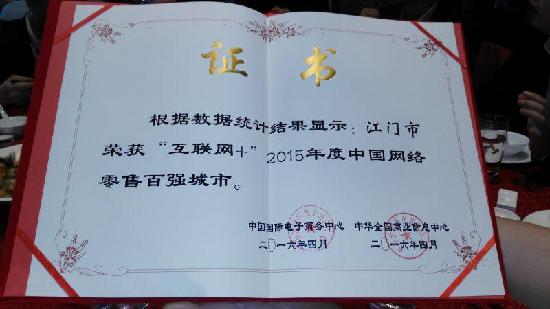 证 书
根据数据统计结果显示：江门市
荣获“互联网+”2015年度中国网络
零售百强城市。
中国国际电子商务中心 中华全国商业信息中心
二〇一六年四月 二〇一六年四月